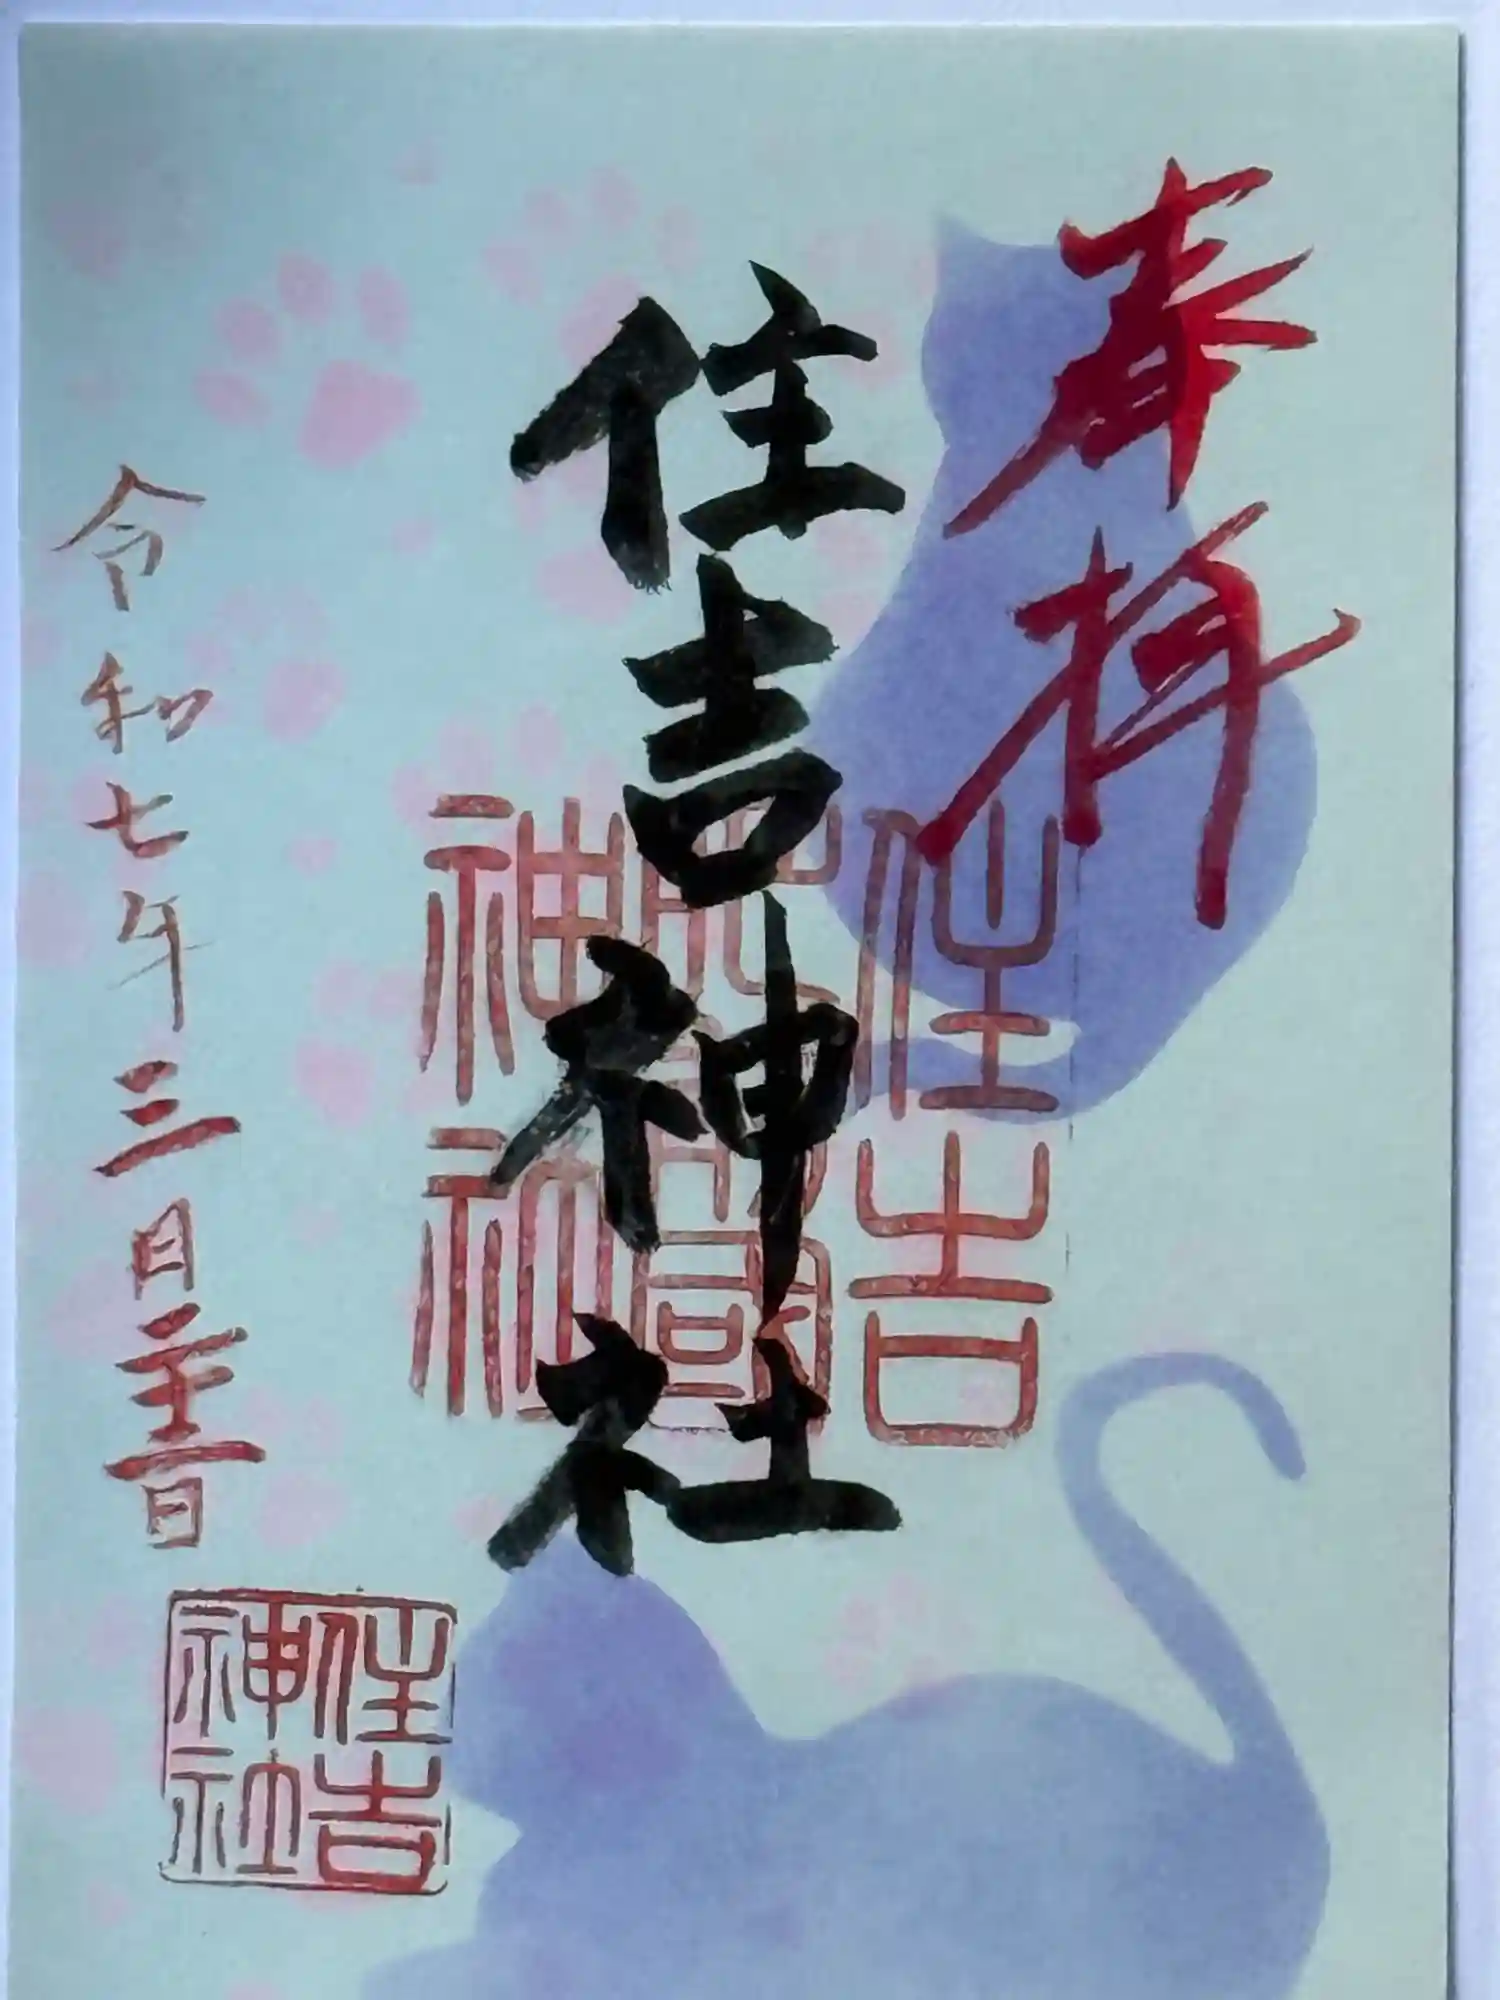 奉拝
住吉神社
住吉
神社
令和七年三月
住吉
神社